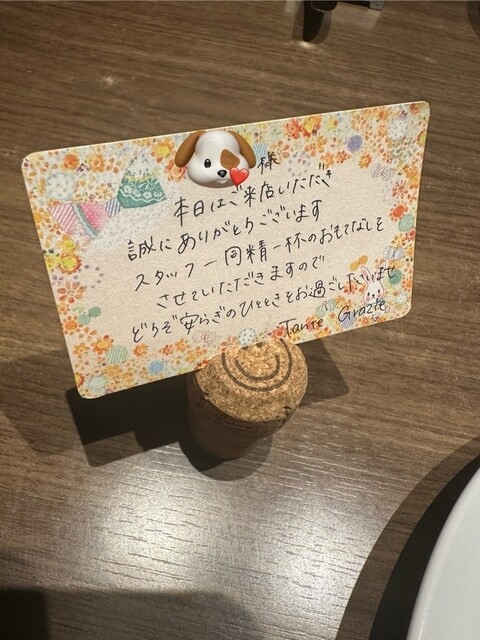 様
本日はご来店いただき
誠にありがとうございます
スタッフ一同精一杯のおもてなしを
させていただきますので
どうぞ安らぎのひとときをお過ごし下さいませ
Tante Grazie